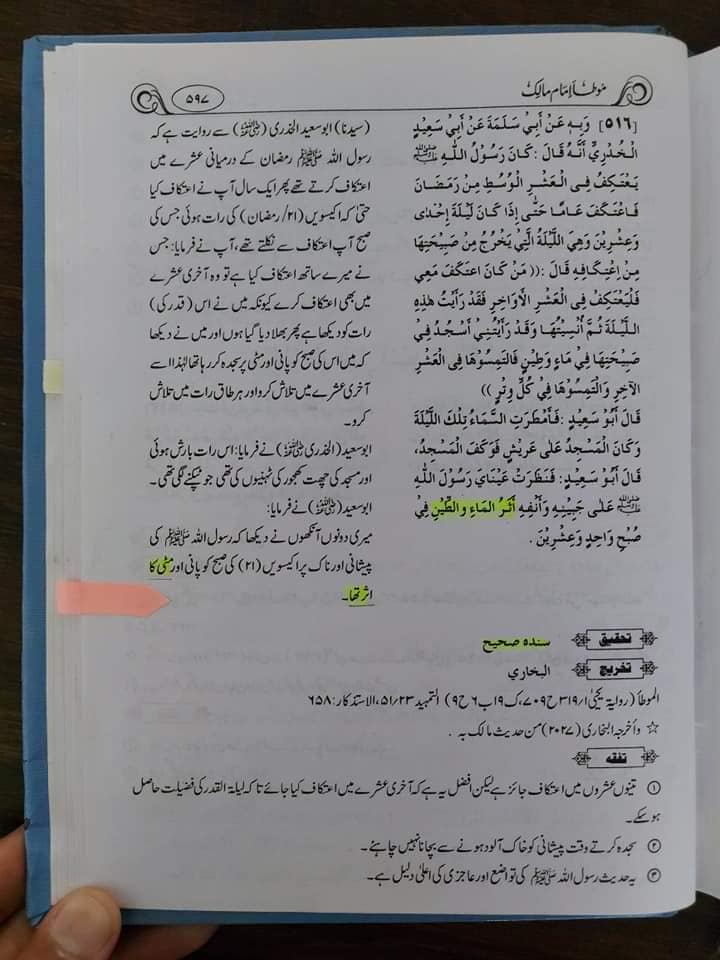 موطأ إمام مالك
۵۹۷
[۵۱٦] وَبِهِ عَنْ أَبِي سَلَمَةَ عَنْ أَبِي سَعِيْدٍ
الْخُدْرِيِّ أَنَّهُ قَالَ: كَانَ رَسُوْلُ اللّٰهِ ﷺ
يَعْتَكِفُ فِى الْعَشْرِ الْوُسُطِ مِنْ رَمَضَانَ
فَاعْتَكَفَ عَامًا حَتّٰى إِذَا كَانَ لَيْلَةَ إِحْدٰى
وَعِشْرِيْنَ وَهِيَ اللَّيْلَةُ الَّتِيْ يَخْرُجُ مِنْ صَبِيْحَتِهَا
مِنِ اعْتِكَافِهِ قَالَ: ((مَنْ كَانَ اعْتَكَفَ مَعِي
فَلْيَعْتَكِفْ فِى الْعَشْرِ الْأَوَاخِرِ فَقَدْ رَأَيْتُ هٰذِهِ
اللَّيْلَةَ ثُمَّ أُنْسِيْتُهَا وَقَدْ رَأَيْتُنِيْ أَسْجُدُ فِيْ
صَبِيْحَتِهَا فِيْ مَاءٍ وَطِيْنٍ فَالْتَمِسُوْهَا فِى الْعَشْرِ
الآخِرِ وَالْتَمِسُوْهَا فِيْ كُلِّ وِتْرٍ))
قَالَ أَبُوْ سَعِيْدٍ: فَأَمْطَرَتِ السَّمَاءُ تِلْكَ اللَّيْلَةَ
وَكَانَ الْمَسْجِدُ عَلٰى عَرِيْشٍ فَوَكَفَ الْمَسْجِدُ،
قَالَ أَبُوْ سَعِيْدٍ: فَنَظَرَتْ عَيْنَايَ رَسُوْلَ اللّٰهِ
ﷺ عَلٰى جَبِيْنِهِ وَأَنْفِهِ أَثَرُ الْمَاءِ وَالطِّيْنِ فِيْ
صُبْحِ وَاحِدٍ وَعِشْرِيْنَ.
(سیدنا) ابوسعید الخدری (ؓ) سے روایت ہے کہ
رسول اللہ ﷺ رمضان کے درمیانی عشرے میں
اعتکاف کرتے تھے پھر ایک سال آپ نے اعتکاف کیا
حتیٰ کہ اکیسویں (۲۱/ رمضان) کی رات ہوئی جس کی
صبح آپ اعتکاف سے نکلتے تھے، آپ نے فرمایا: جس
نے میرے ساتھ اعتکاف کیا ہے تو وہ آخری عشرے
میں بھی اعتکاف کرے کیونکہ میں نے اس (قدر کی)
رات کو دیکھا ہے پھر بھلا دیا گیا ہوں اور میں نے دیکھا
کہ میں اس کی صبح کو پانی اور مٹی پر سجدہ کر رہا تھا لہٰذا اسے
آخری عشرے میں تلاش کرو اور ہر طاق رات میں تلاش
کرو۔
ابوسعید (الخدری ؓ) نے فرمایا: اس رات بارش ہوئی
اور مسجد کی چھت کھجور کی ٹہنیوں کی تھی جو ٹپکنے لگی تھی۔
ابوسعید (ؓ) نے فرمایا:
میری دونوں آنکھوں نے دیکھا کہ رسول اللہ ﷺ کی
پیشانی اور ناک پر اکیسویں (۲۱) کی صبح کو پانی اور مٹی کا
اثر تھا۔
تحقیق سنده صحیح
تخریج البخاري
الموطأ (رواية یحییٰ ۳۱۹/۱ ح ۷۰۹، ك ۱۹ ب ٦ ح ۹) التمهید ۵۱/۲۳، الاستذکار: ٦۵۸
☆ وأخرجه البخاري (۲۰۲۷) من حدیث مالك به.
تفقه
① تینوں عشروں میں اعتکاف جائز ہے لیکن افضل یہ ہے کہ آخری عشرے میں اعتکاف کیا جائے تاکہ لیلۃ القدر کی فضیلت حاصل
ہوسکے۔
② سجدہ کرتے وقت پیشانی کو خاک آلود ہونے سے بچانا نہیں چاہئے۔
③ یہ حدیث رسول اللہ ﷺ کی تواضع اور عاجزی کی اعلیٰ دلیل ہے۔